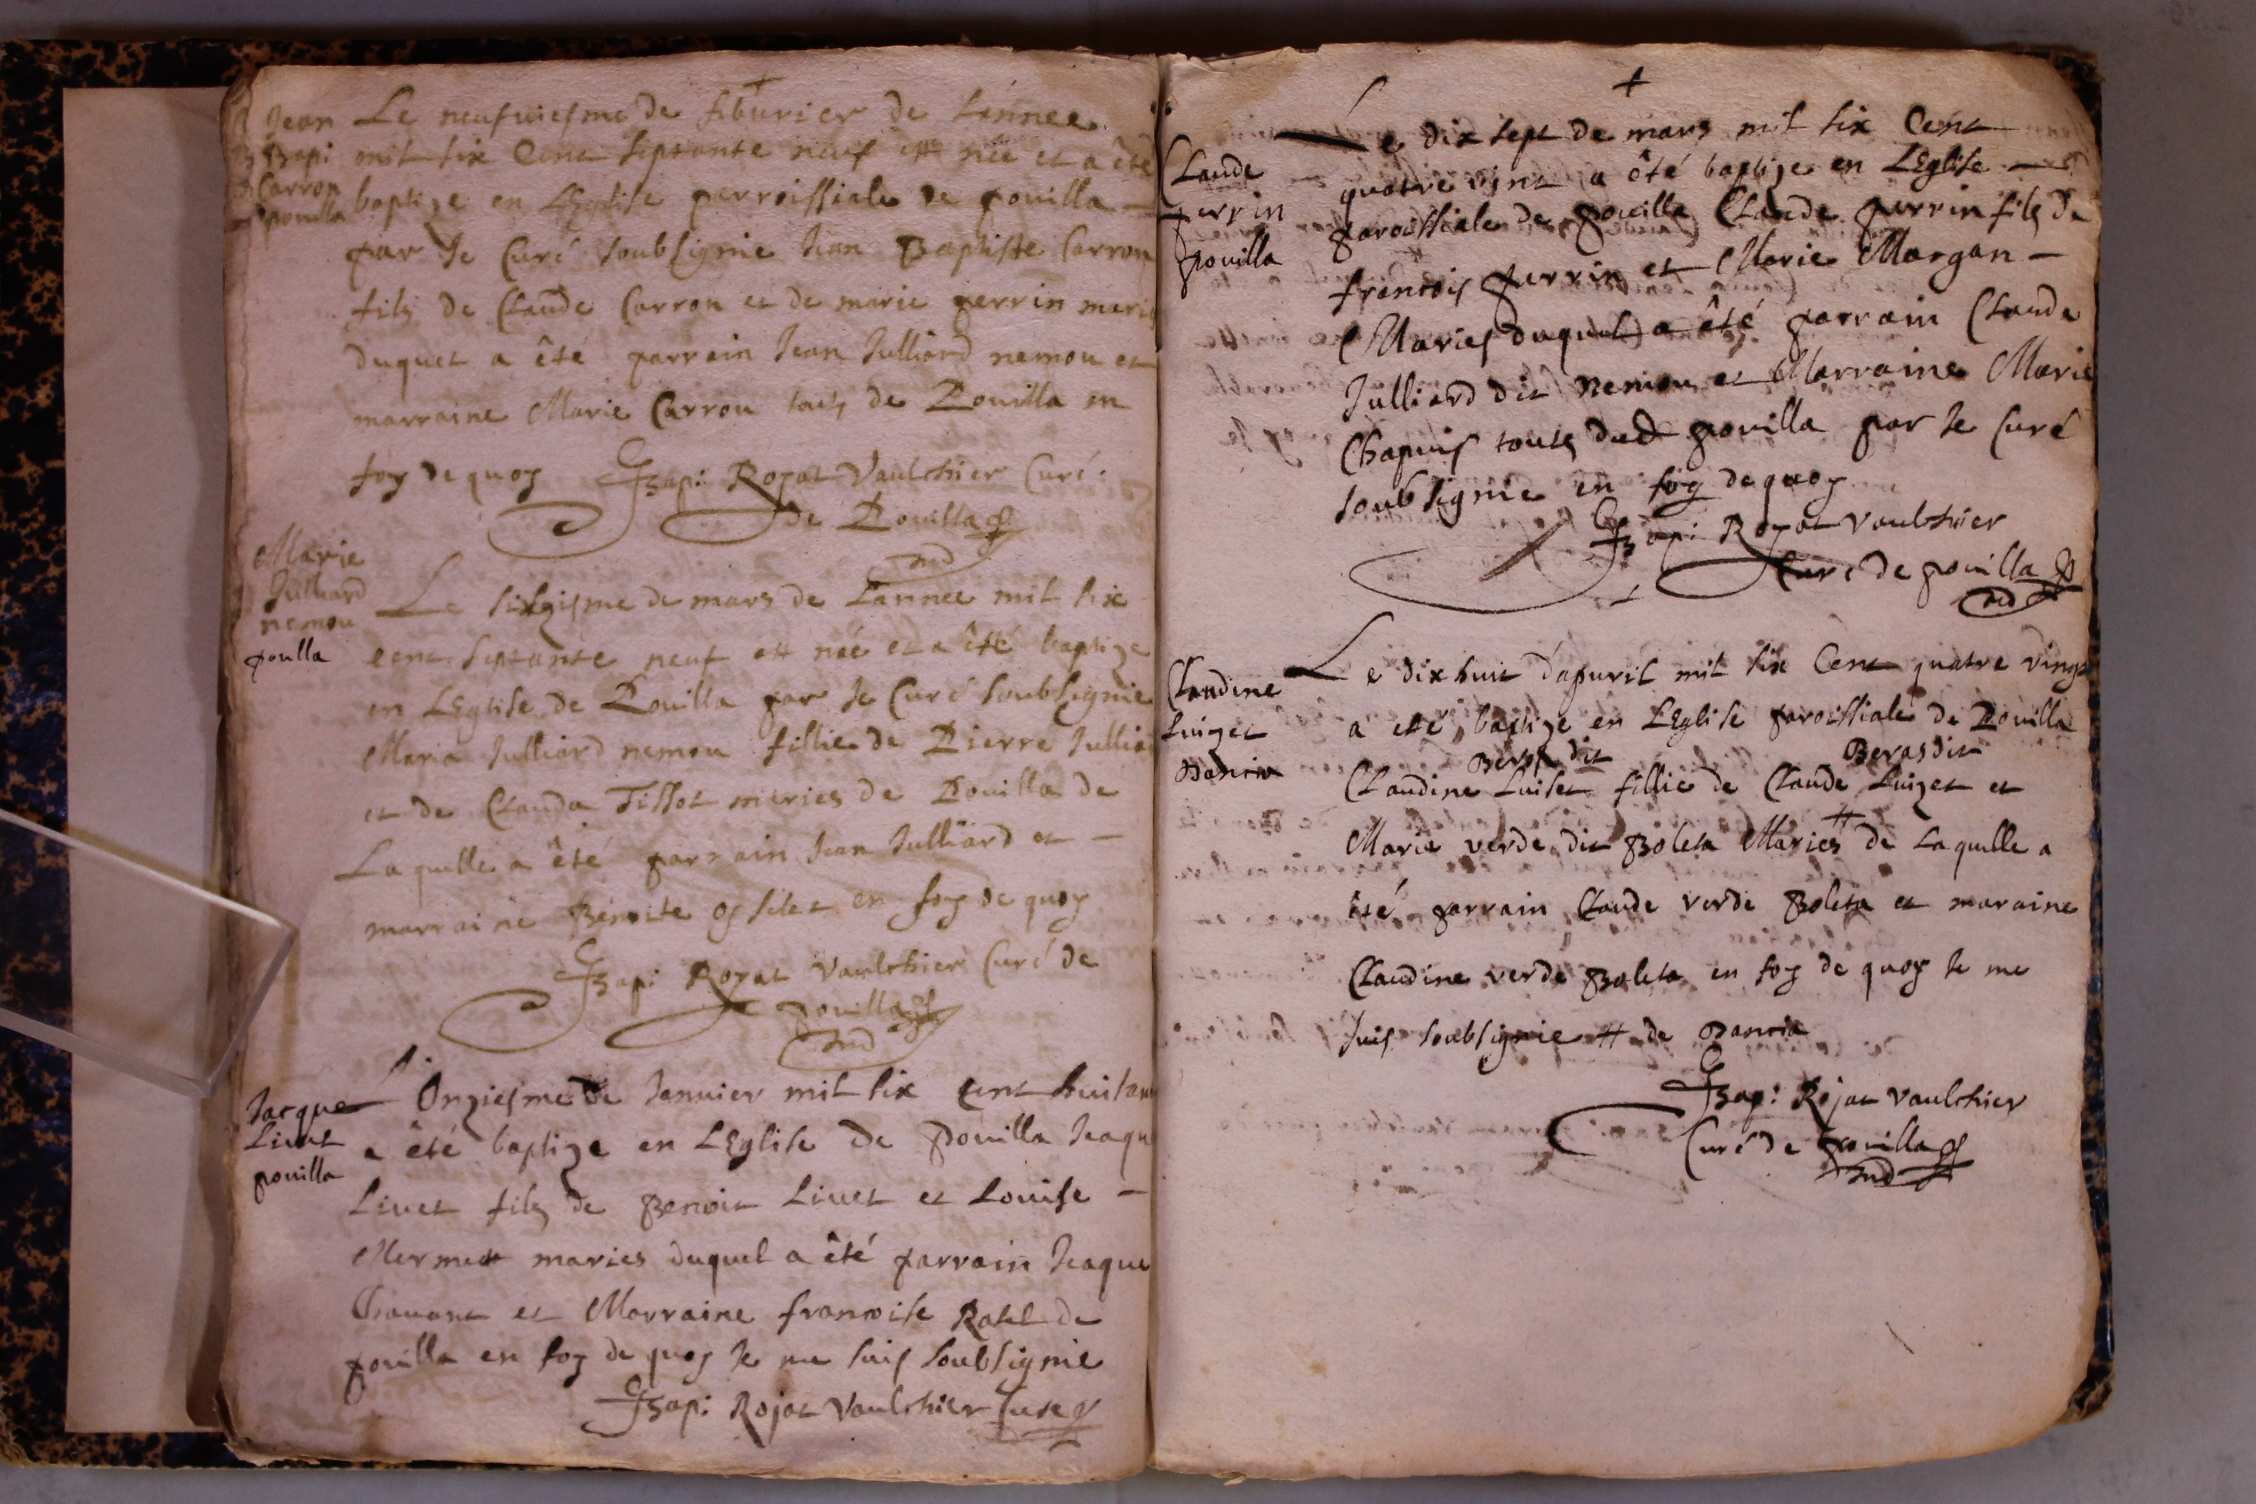 Jean
Bapi
Carron
pouilla
Le neufuiesme de feburier de Lannee
mil six Cent septante neuf est née et a êté
baptize en LEglise perroissiale de pouilla
par Je Curé soubsignie Jean Baptiste Carron
fils de Claude Carron et de marie perrin maries
duquel a êté parrein Jean Julliard nemou et
marraine Marie Carron touts de Pouilla en
foy de quoy JBapi: Royat Vaulchier Curé
de Pouilla
Marie
Julliard
nemou
poulla
Le sixgisme de mars de Lannee mil six
cent septante neuf est née et a êtté baptize
en LEglise de Pouilla par Je Curé soubsignie
Maria Julliard nemou fillie de Pierre Julliard
et de Clauda Tissot maries de Pouilla de
Laquelle a êté parrain Jean Julliard et
marraine Benoite en foy de quoy
JBapi: Royat Vaulchier Curé de
pouilla
Jacque
Livet
pouilla
L'Onziesme de Januier mil six cent huitante
a êté baptize en LEglise de Pouilla Jeaque
Livet fils de Benoit Livet et Louise
Mermet maries duquel a êté parrain Jeaque
Chavant et Marraine francoise Ratel de
pouilla en foy de quoy Je me suis soubsignie
JBapi: Rojat Vaulchier Curé
Claude
perrin
pouilla
Le dix sept de mars mil six Cent
quatre vint a êté baptize en LEglise
paroissiale de pouilla Claude perrin fils de
francois perrin et Marie Margan
Maries duquel a êté parrain Claude
Julliard dit Nemou et Marraine Marie
Chapuis touts dud pouilla par Je Curé
soubsignie en foy de quoy
JBapi: Royat Vaulchier
Curé de pouilla
Claudine
Luizet
Dancia
Le dix huit d'apuril mil six Cent quatre vingt
a etté baptize en LEglise paroissiale de Pouilla
Beras dit Beras dit
Claudine Luiset fillie de Claude Luizet et
Marie verde dit Boleta Maries # de Laquelle a
été parrain Claude verde Boleta et maraine
Claudine verde Boleta en foy de quoy Je me
suis soubsignie # de Dancia
JBapi: Rojat Vaulchier
Curé de pouilla